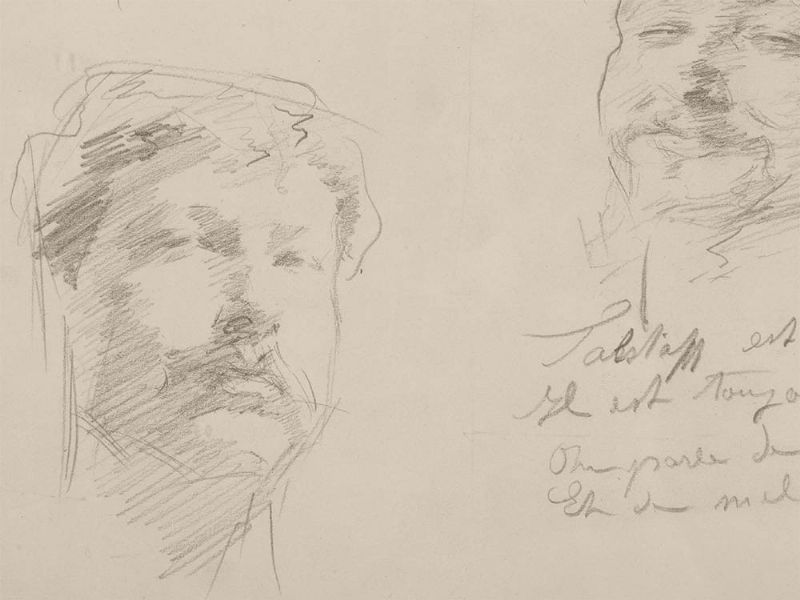 Falstaff est
Il est toujo
On parle de
Et de mil